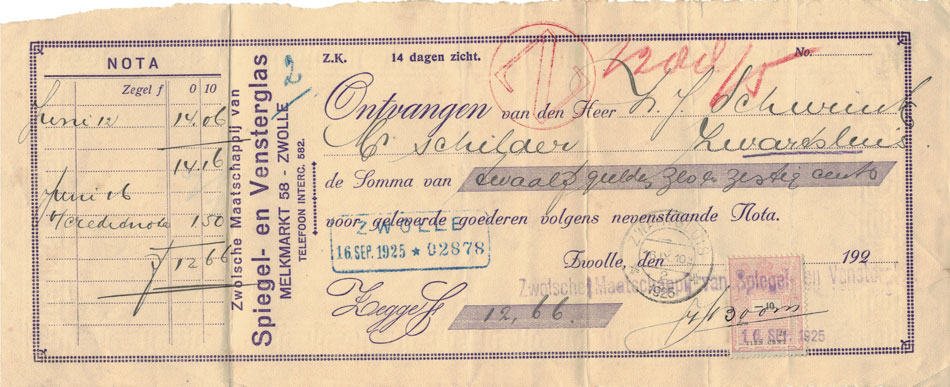 NOTA
Zegel f 0 10
Juni 12 14.06
14.16
Juni 16
Creditnota 1.50
12.66
Zwolsche Maatschappij van
Spiegel- en Vensterglas
MELKMARKT 58 - ZWOLLE
TELEFOON INTERC. 582.
2
Z.K. 14 dagen zicht. No.
Ontvangen van den Heer H. J. Schurink
Mr Schilder Zwartsluis
de Somma van twaalf gulden zes en zestig cents
voor geleverde goederen volgens nevenstaande Nota.
ZWOLLE
16. SEP. 1925 * 02878
Zwolle, den 192
1925
Zwolsche Maatschappij van Spiegel- en Venster
Zegge f 12,66.
10
16 SEP. 1925